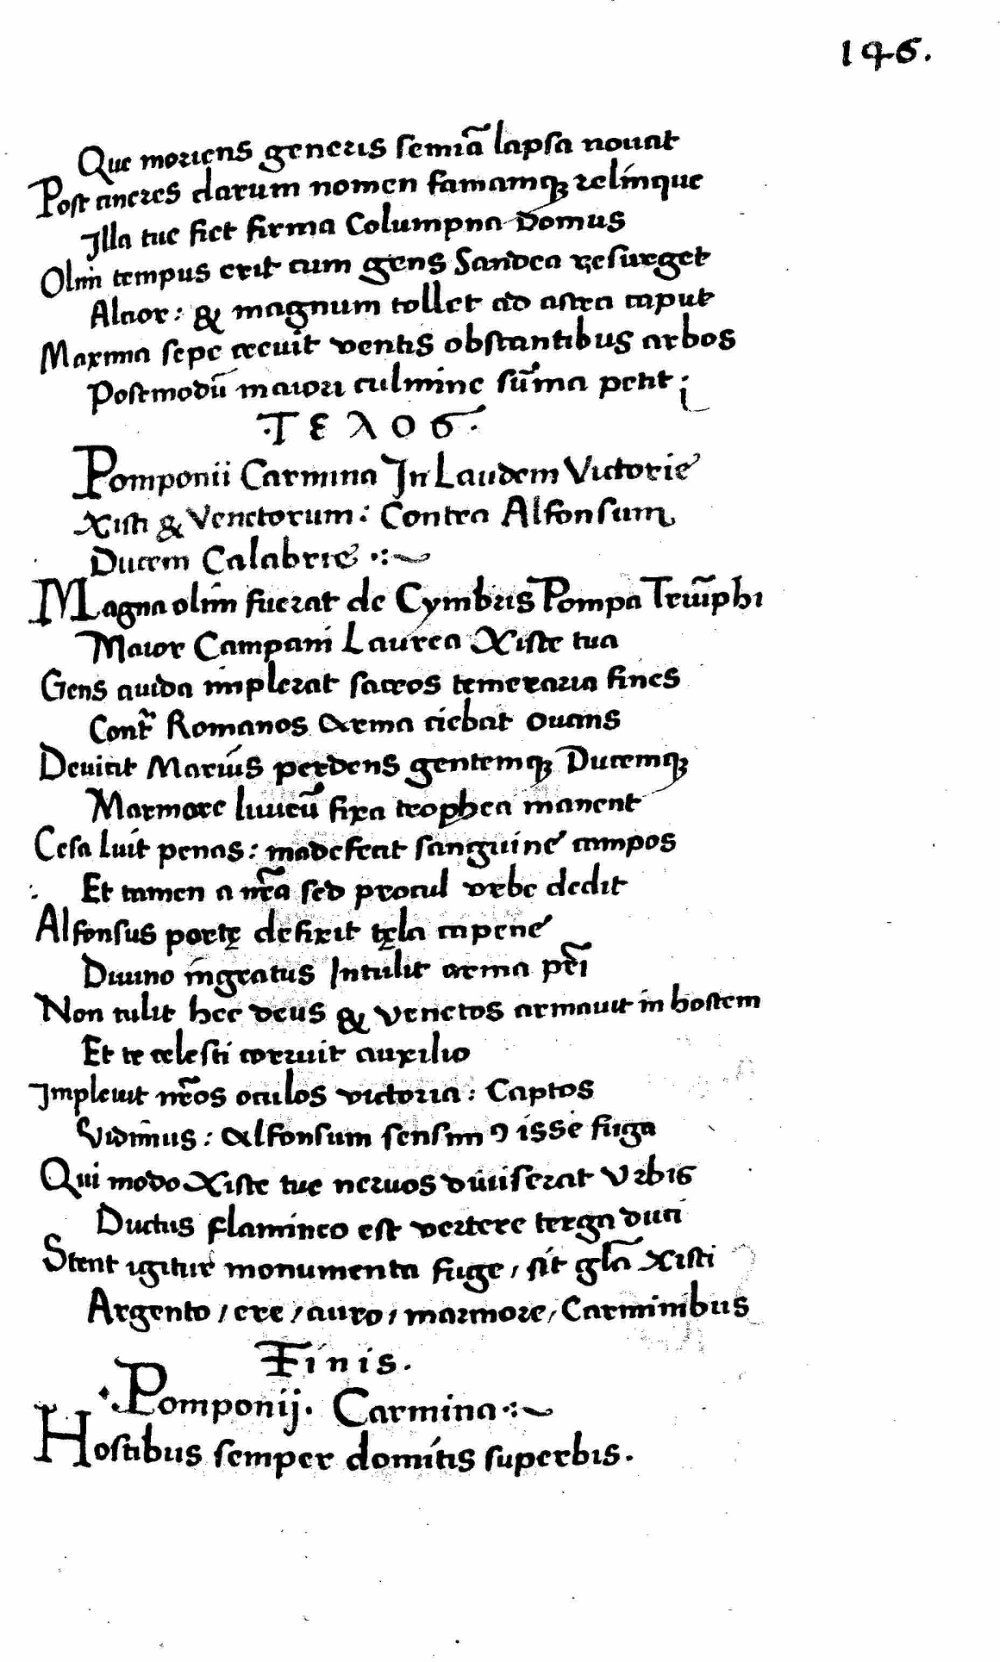 146.
Que moriens generis semīa lapsa nouat
Post cineres clarum nomen famamqꝫ relinque
Illa tue fiet firma Columpna domus
Olim tempus erit cum gens Sandea resurget
Alcior: & magnum tollet ad astra caput
Maxima sepe cecuit ventis obstantibus arbos
Postmodū maiori culmine sūma petit;
·Τελος·
Pomponii Carmina In Laudem Victorie
Xisti & Venetorum: Contra Alfonsum
Ducem Calabrie
Magna olim fuerat de Cymbris Pompa Triūphi
Maior Campani Laurea Xiste tua
Gens auida implerat sacros temeraria fines
Contr̄ Romanos Arma ciebat ouans
Deuicit Marius perdens gentemqꝫ Ducemqꝫ
Marmore fixa trophea manent
Cesa luit penas: madefecit sanguine campos
Et tamen a nr̄a sed procul vrbe dedit
Alfonsus portę defixit tęla capene
Diuino ingratus Intulit arma pr̄i
Non tulit hec deus & venetos armauit in hostem
Et te celesti corruit auxilio
Impleuit nr̄os oculos victoria: Captos
Vidimus: Alfonsum sensim ꝯ isse fuga
Qui modo Xiste tue neruos diuiserat Vrbis
Ductus flamineo est vertere terga duci
Stent igitur monumenta fuge, sit glā Xisti
Argento / ere / auro / marmore / Carminibus
Finis.
Pomponij. Carmina
Hostibus semper domitis superbis.